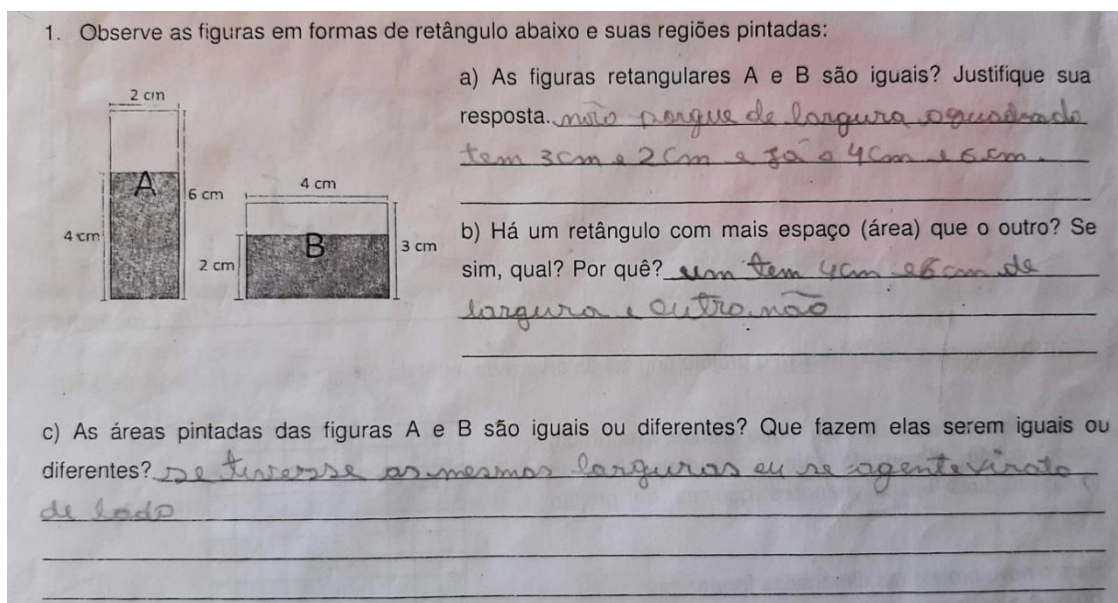 1. Observe as figuras em formas de retângulo abaixo e suas regiões pintadas:
2 cm
A
6 cm
4 cm
4 cm
B
3 cm
2 cm
a) As figuras retangulares A e B são iguais? Justifique sua
resposta. não porque de largura o quadrado
tem 3cm e 2cm e já o 4cm e 6cm.
b) Há um retângulo com mais espaço (área) que o outro? Se
sim, qual? Por quê? um tem 4cm e 6cm de
largura e outro não
c) As áreas pintadas das figuras A e B são iguais ou diferentes? Que fazem elas serem iguais ou
diferentes? se tivesse as mesmas larguras eu se agente
de lado